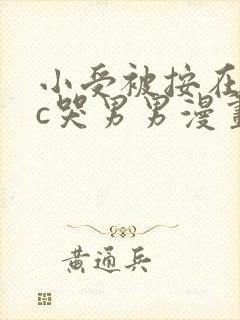 小受被按在
c哭男男漫畫
黄通兵